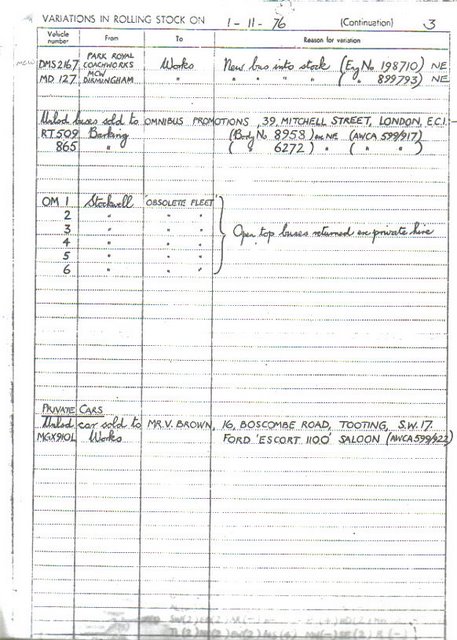 VARIATIONS IN ROLLING STOCK ON 1-11-76 (Continuation) 3
Vehicle number From To Reason for variation
MCW
DMS2167 PARK ROYAL COACHWORKS Works New bus into stock (Eng No 198710) NE
MD 127 MCW BIRMINGHAM " " " " " ( " 899793) NE
Unlsd buses sold to OMNIBUS PROMOTIONS, 39, MITCHELL STREET, LONDON, E.C.1:-
RT509 Barking (Body No 8958) ex NE (AWCA 599/917)
865 " ( " 6272) " ( " " )
OM 1 Stockwell 'OBSOLETE FLEET'
2 " " "
3 " " " Open top buses returned ex private hire
4 " " "
5 " " "
6 " " "
PRIVATE CARS
Unlsd car sold to MR.V. BROWN, 16, BOSCOMBE ROAD, TOOTING, S.W.17.
MGX910L Works FORD 'ESCORT 1100' SALOON (AWCA599/922)